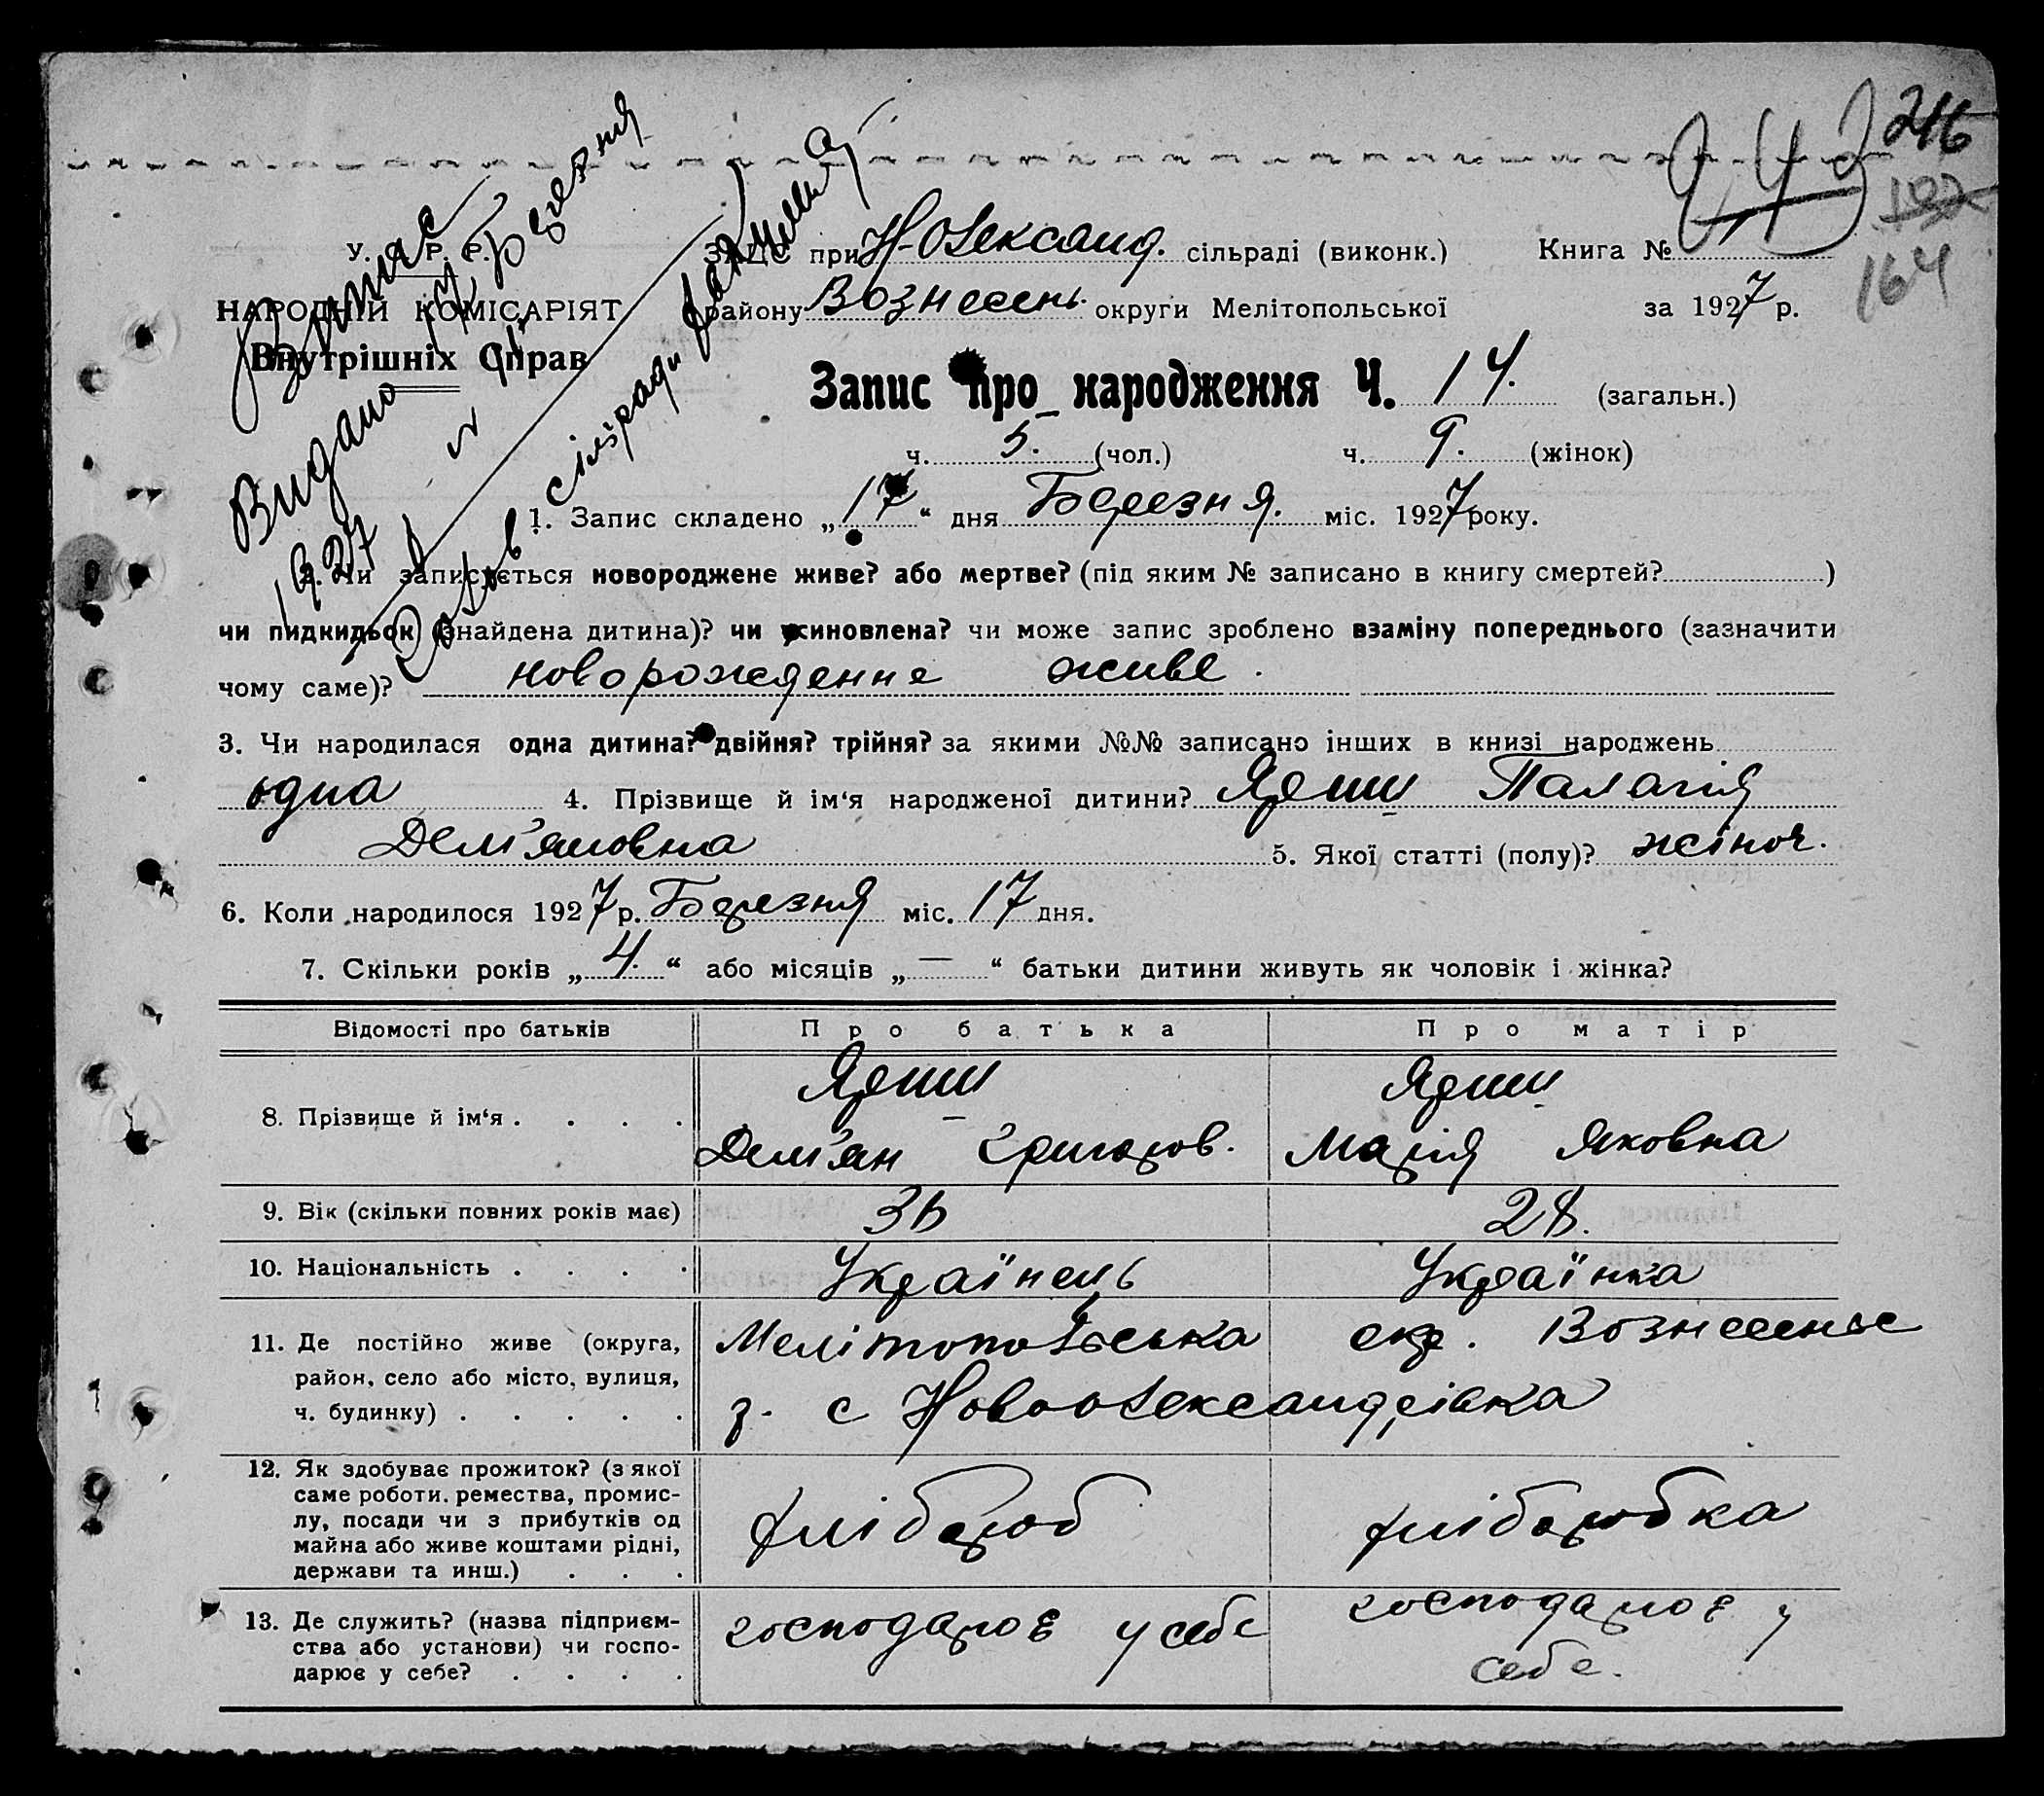 216
243
192
164
У. С. Р. Р.
НАРОДНІЙ КОМІСАРІЯТ
Внутрішніх Справ
Витяг
Видано 17 березня
1927 р
Голов сільради
ЗАЦС при Н-Олександ. сільраді (виконк.) Книга №
району Вознесенс. округи Мелітопольської за 1927 р.
Запис про народження Ч. 14. (загальн.)
ч. 5. (чол.) ч. 9. (жінок)
1. Запис складено „17“ дня Березня. міс. 1927 року.
2. Чи записується новороджене живе? або мертве? (під яким № записано в книгу смертей? )
чи пидкидьок (знайдена дитина)? чи усиновлена? чи може запис зроблено взаміну попереднього (зазначити
чому саме)? новорожденне живе.
3. Чи народилася одна дитина? двійня? трійня? за якими №№ записано інших в книзі народжень
одна 4. Прізвище й ім‘я народженої дитини? Ярош Палагія
Дем'яновна 5. Якої статті (полу)? жіноч.
6. Коли народилося 1927 р. Березня міс. 17 дня.
7. Скільки років „4.“ або місяців „—“ батьки дитини живуть як чоловік і жінка?
Відомості про батьків Про батька Про матір
8. Прізвище й ім‘я . . . . Ярош Дем'ян Григоров. Ярош Марія Яковна
9. Вік (скільки повних років має) 36 28.
10. Національність . . . . Українець Українка
11. Де постійно живе (округа, Мелітопольська окр. Вознесенс
район, село або місто, вулиця,
ч. будинку) . . . . . р. с Новоолександрівка
12. Як здобуває прожиток? (з якої
саме роботи. ремества, промис-
лу, посади чи з прибутків од хлібороб хліборобка
майна або живе коштами рідні,
держави та инш.) . . .
13. Де служить? (назва підприєм- господарює у себе господарює у
ства або установи) чи госпо- себе.
дарює у себе? . . . .